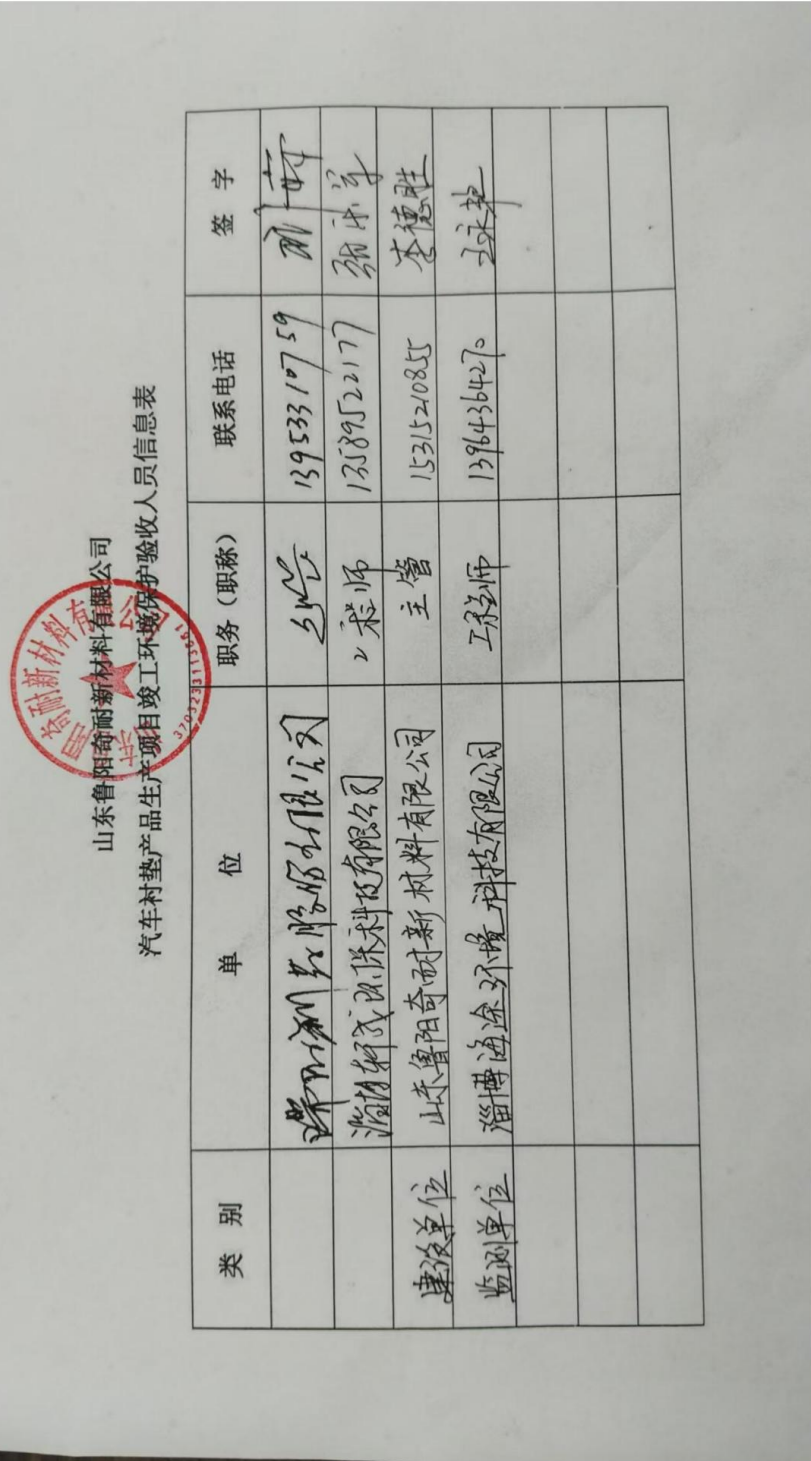 山东鲁阳奇耐新材料有限公司
汽车衬垫产品生产项目竣工环境保护验收人员信息表
类 别 单 位 职务（职称） 联系电话 签 字
股份有限公司 13953310759
环保科技有限公司 工程师 13589522177
建设单位 山东鲁阳奇耐新材料有限公司 主管 15315210855 李德胜
监测单位 淄博海途环境科技有限公司 工程师 13964364270
奇耐新材料有
3703233115961